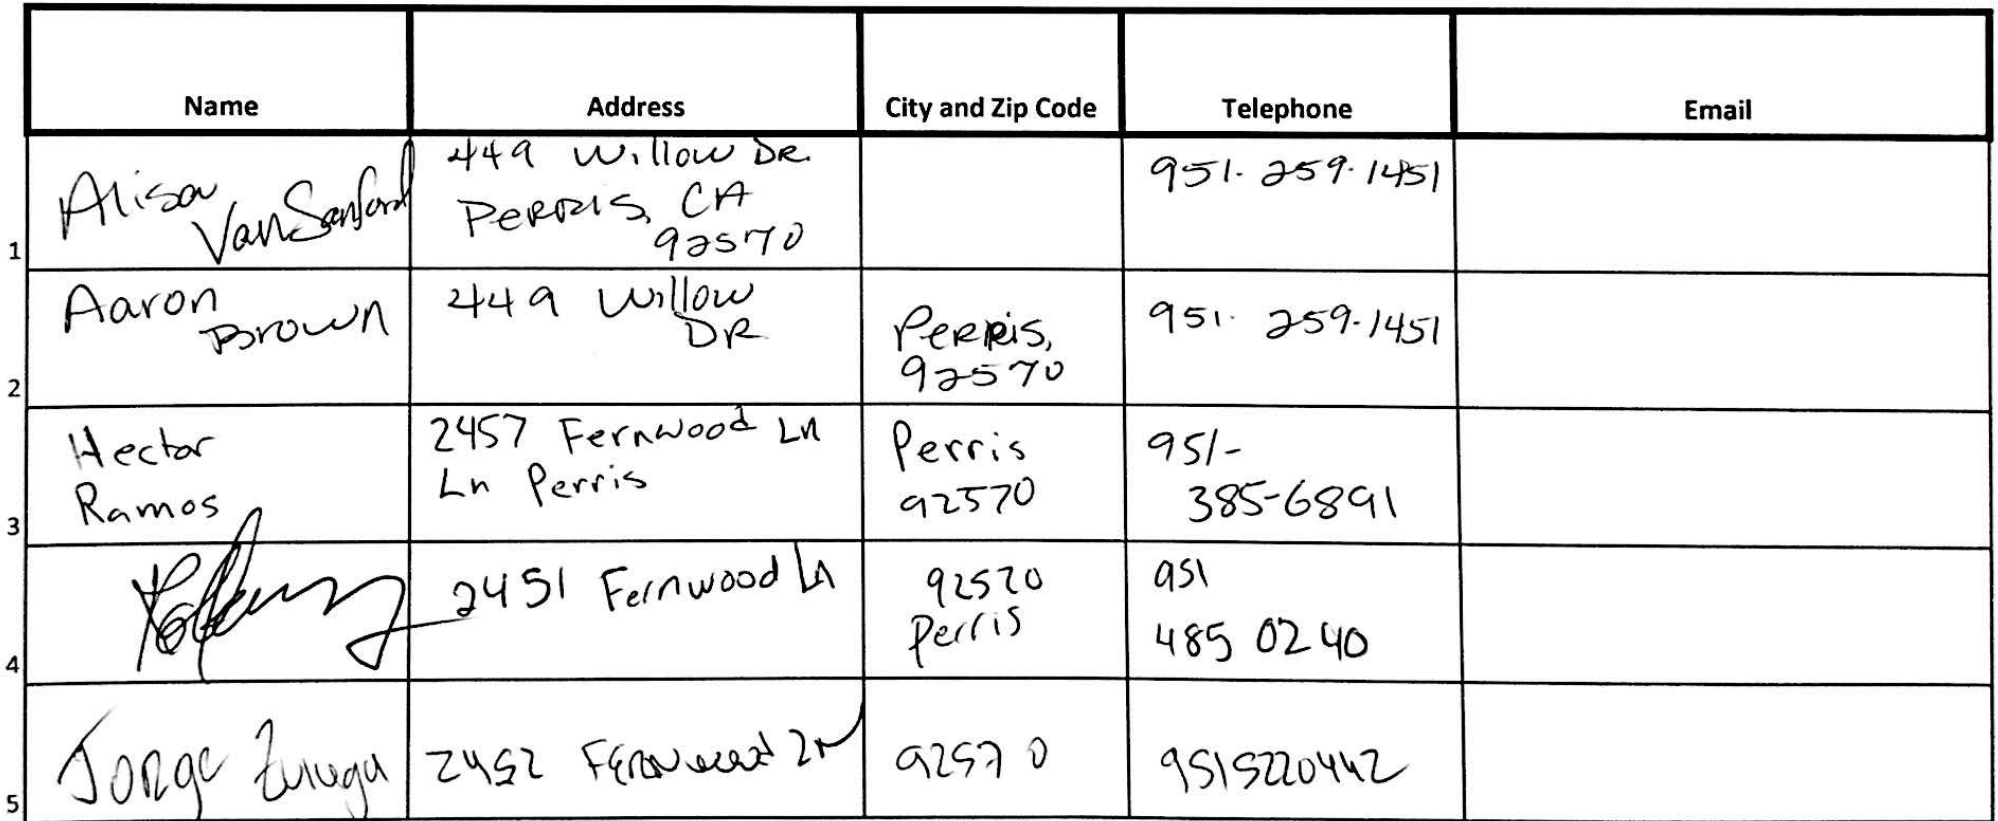 Name Address City and Zip Code Telephone Email
1 Alison VanSanford 449 Willow DR. PERRIS, CA 92570 951-259-1451
2 Aaron Brown 449 Willow DR Perris, 92570 951-259-1451
3 Hector Ramos 2457 Fernwood Ln Ln Perris Perris 92570 951-385-6891
4 2451 Fernwood Ln 92570 Perris 951 485 0240
5 Jorge Zuniga 2452 Fernwood Ln 92570 9515220442